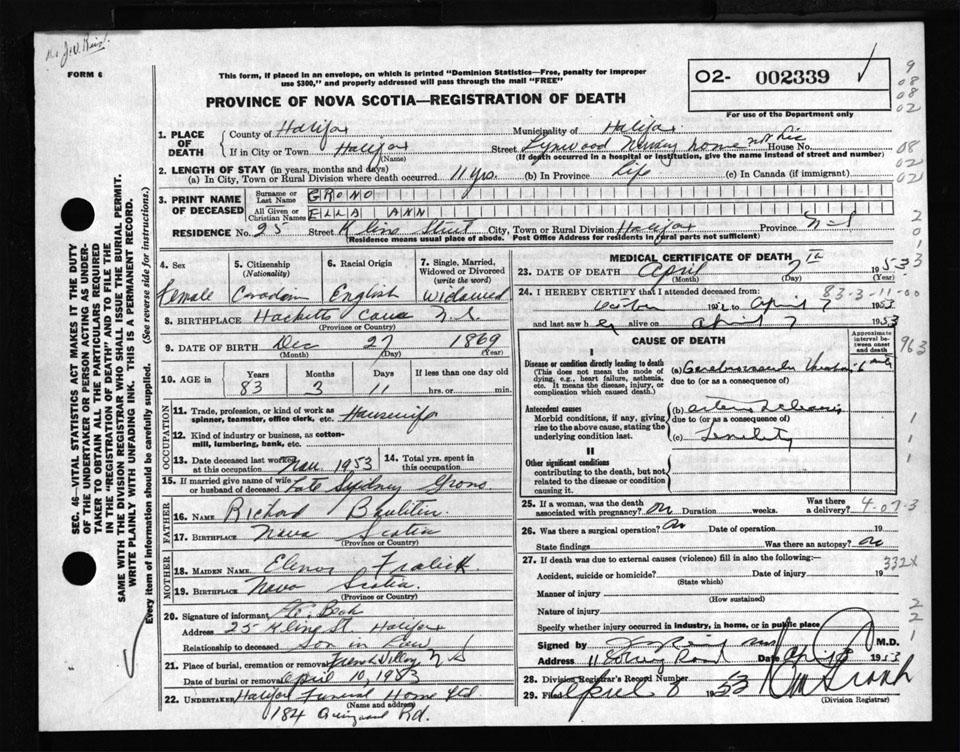 FORM 6
This form, if placed in an envelope, on which is printed "Dominion Statistics—Free, penalty for improper
use $300," and properly addressed will pass through the mail "FREE"
PROVINCE OF NOVA SCOTIA—REGISTRATION OF DEATH
02- 002339
For use of the Department only
SEC. 46—VITAL STATISTICS ACT MAKES IT THE DUTY
OF THE UNDERTAKER OR PERSON ACTING AS UNDER-
TAKER TO OBTAIN ALL THE PARTICULARS REQUIRED
IN THE "REGISTRATION OF DEATH" AND TO FILE THE
SAME WITH THE DIVISION REGISTRAR WHO SHALL ISSUE THE BURIAL PERMIT.
WRITE PLAINLY WITH UNFADING INK. THIS IS A PERMANENT RECORD.
Every item of information should be carefully supplied. (See reverse side for instructions.)
1. PLACE OF DEATH
County of Halifax Municipality of Halifax
If in City or Town Halifax (Name) Street Lynwood Nursing home House No.
(If death occurred in a hospital or institution, give the name instead of street and number)
2. LENGTH OF STAY (in years, months and days)
(a) In City, Town or Rural Division where death occurred 11 yrs. (b) In Province life (c) In Canada (if immigrant)
3. PRINT NAME OF DECEASED
Surname or Last Name GRONO
All Given or Christian Names ELLA ANN
RESIDENCE No. 25 Street Kline Street City, Town or Rural Division Halifax Province N-S
(Residence means usual place of abode. Post Office Address for residents in rural parts not sufficient)
4. Sex Female
5. Citizenship (Nationality) Canadian
6. Racial Origin English
7. Single, Married, Widowed or Divorced (write the word) Widowed
8. BIRTHPLACE Hacketts Cove N.S.
(Province or Country)
9. DATE OF BIRTH Dec 27 1869
(Month) (Day) (Year)
10. AGE in Years Months Days If less than one day
83 3 11 hrs. or min.
OCCUPATION
11. Trade, profession, or kind of work as spinner, teamster, office clerk, etc. Housewife
12. Kind of industry or business, as cotton-mill, lumbering, bank, etc.
13. Date deceased last worked at this occupation 1953
14. Total yrs. spent in this occupation
15. If married give name of wife or husband of deceased Late Sydney Grono
FATHER
16. NAME Richard
17. BIRTHPLACE Nova Scotia
(Province or Country)
MOTHER
18. MAIDEN NAME Elenor Fralick
19. BIRTHPLACE Nova Scotia
(Province or Country)
20. Signature of informant
Address 25 Kline St. Halifax
Relationship to deceased Son in Law
21. Place of burial, cremation or removal French Village N S
Date of burial or removal April 10, 1953
22. UNDERTAKER Halifax Funeral Home Ltd
(Name and address)
184 Quinpool Rd.
MEDICAL CERTIFICATE OF DEATH
23. DATE OF DEATH April 7th 1953
(Month) (Day) (Year)
24. I HEREBY CERTIFY that I attended deceased from: 83-3-11-00
to April 7 1953
and last saw h er alive on April 7 1953
CAUSE OF DEATH
Approximate interval between onset and death
I
Disease or condition directly leading to death
(This does not mean the mode of dying, e.g., heart failure, asthenia, etc. It means the disease, injury, or complication which caused death.)
(a)
due to (or as a consequence of)
Antecedent causes
Morbid conditions, if any, giving rise to the above cause, stating the underlying condition last.
(b)
due to (or as a consequence of)
(c) Senility
II
Other significant conditions
contributing to the death, but not related to the disease or condition causing it.
25. If a woman, was the death associated with pregnancy? no Duration weeks. Was there a delivery? 4-07-3
26. Was there a surgical operation? no Date of operation 19
State findings Was there an autopsy? no
27. If death was due to external causes (violence) fill in also the following:—
Accident, suicide or homicide? Date of injury 19
332X
(State which)
Manner of injury
(How sustained)
Nature of injury
Specify whether injury occurred in industry, in home, or in public place
Signed by M.D.
Address Date 1953
28. Division Registrar's Record Number
29. Filed April 8 1953
(Division Registrar)